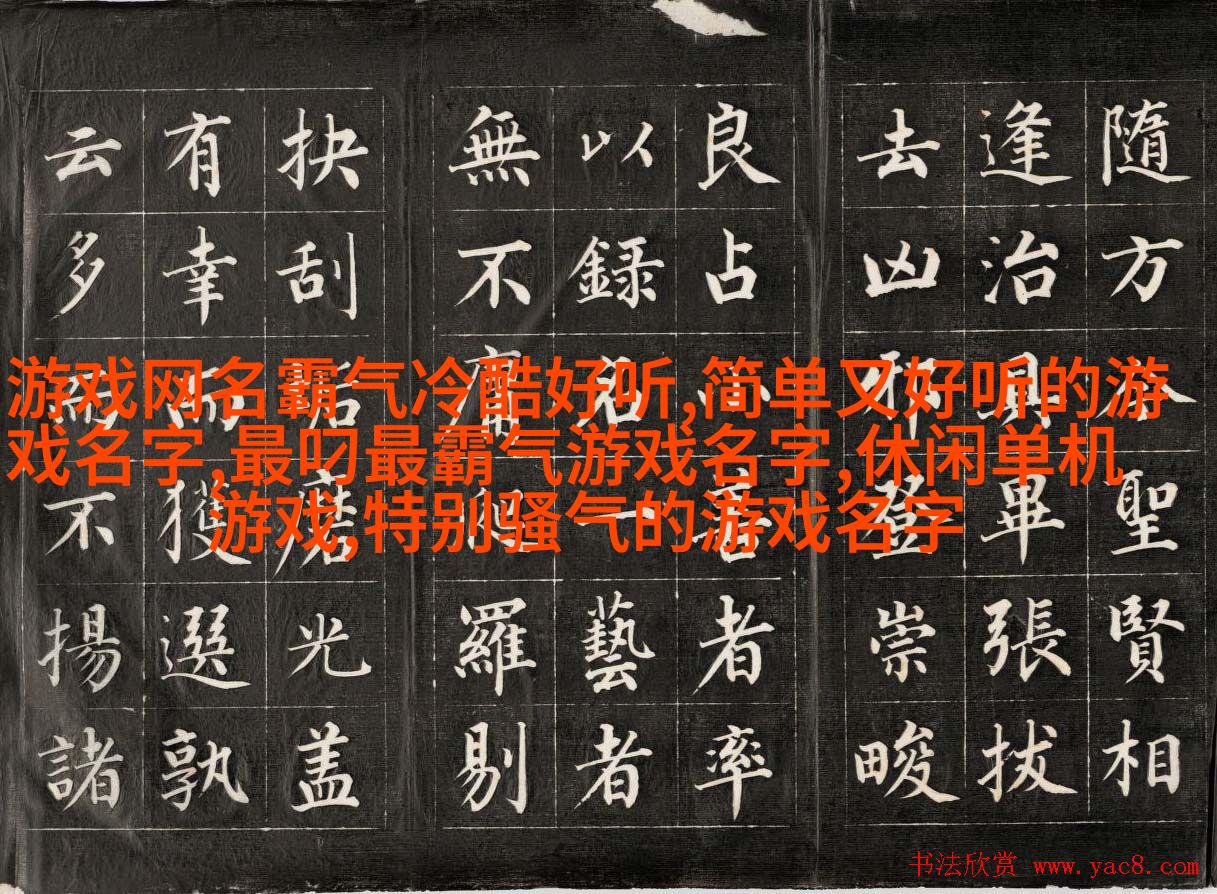 游戏网名霸气冷酷好听,简单又好听的游
戏名字,最叼最霸气游戏名字,休闲单机
游戏,特别骚气的游戏名字
隨方今聖賢相
逢治具畢張拔
去凶邪登崇畯
良占小善者率
以録名一藝者
無不庸爬羅剔
抉刮垢磨光盖
有幸而獲選孰
云多而不揚諸
书法欣赏 www.yac8.com